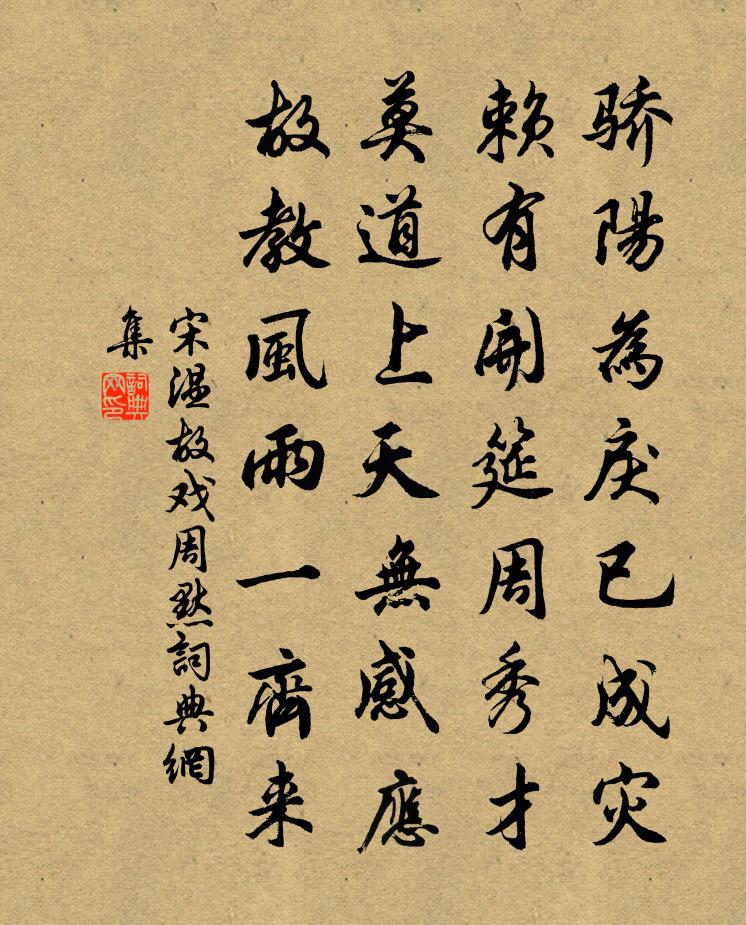 骄陽為戾已成灾
赖有開筵周秀才
莫道上天無感應
故教風雨一齊来
宋温故戏周默詞典網
集
詞典
网印